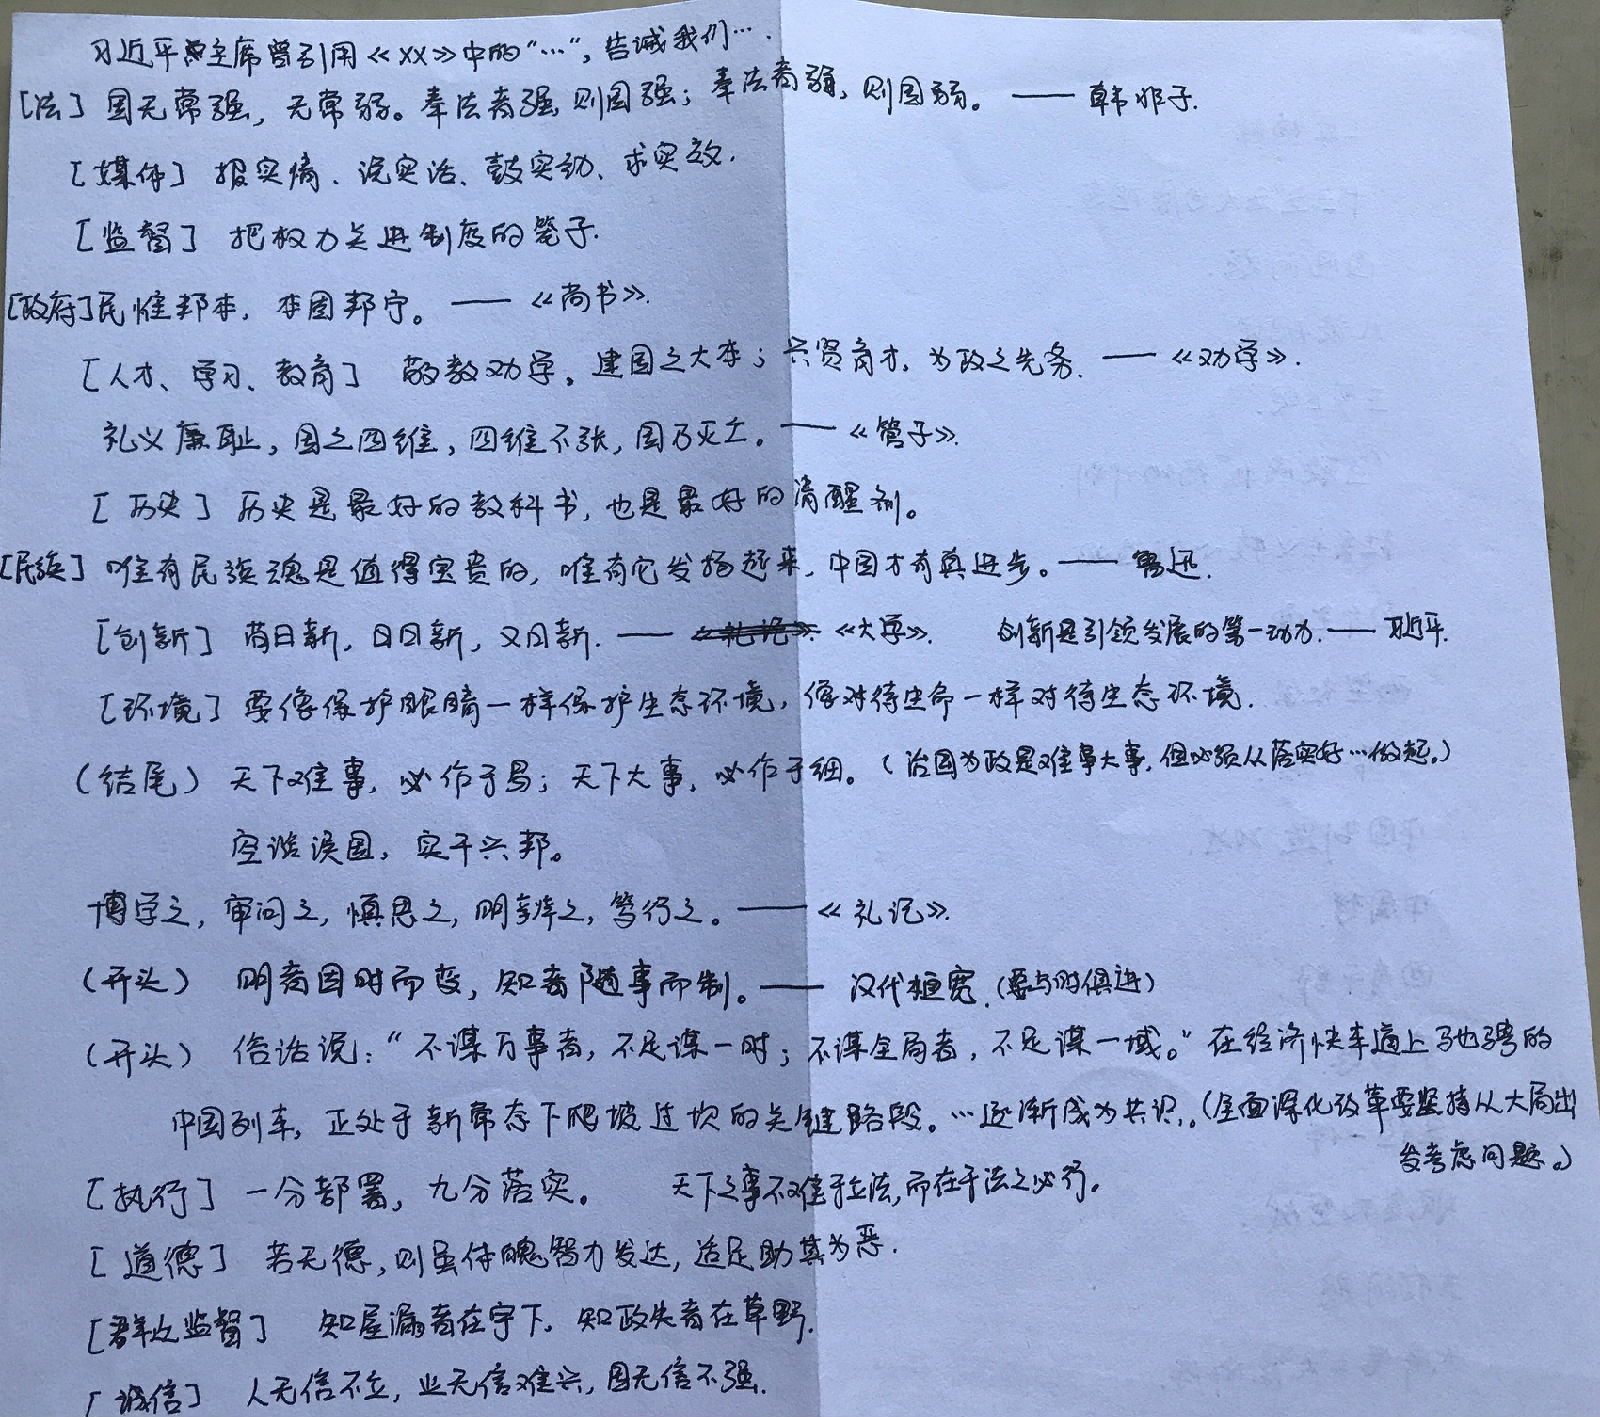 习近平总主席曾引用《XX》中的“…”，告诫我们….
[法] 国无常强，无常弱。奉法者强，则国强；奉法者弱，则国弱。—— 韩非子.
[媒体] 报实情、说实话、鼓实劲、求实效.
[监督] 把权力关进制度的笼子.
[政府] 民惟邦本，本固邦宁。——《尚书》.
[人才、学习、教育] 敬教劝学，建国之大本；兴贤育才，为政之先务. ——《劝学》.
礼义廉耻，国之四维，四维不张，国乃灭亡。——《管子》.
[历史] 历史是最好的教科书，也是最好的清醒剂。
[民族] 唯有民族魂是值得宝贵的，唯有它发扬起来，中国才有真进步。—— 鲁迅.
[创新] 苟日新，日日新，又日新. ——《大学》. 创新是引领发展的第一动力. —— 习近平.
[环境] 要像保护眼睛一样保护生态环境，像对待生命一样对待生态环境.
(结尾) 天下难事，必作于易；天下大事，必作于细。(治国为政是难事大事，但必须从落实好…做起。)
空谈误国，实干兴邦。
博学之，审问之，慎思之，明辨之，笃行之。——《礼记》.
(开头) 明者因时而变，知者随事而制。—— 汉代桓宽. (要与时俱进)
(开头) 俗话说：“不谋万事者，不足谋一时；不谋全局者，不足谋一域。”在经济快车道上驰骋的
中国列车，正处于新常态下爬坡过坎的关键路段。…逐渐成为共识. (全面深化改革要坚持从大局出
发考虑问题。)
[执行] 一分部署，九分落实。 天下之事不难于立法，而在于法之必行。
[道德] 若无德，则虽体魄智力发达，适足助其为恶.
[群众监督] 知屋漏者在宇下，知政失者在草野.
[诚信] 人无信不立，业无信难兴，国无信不强.